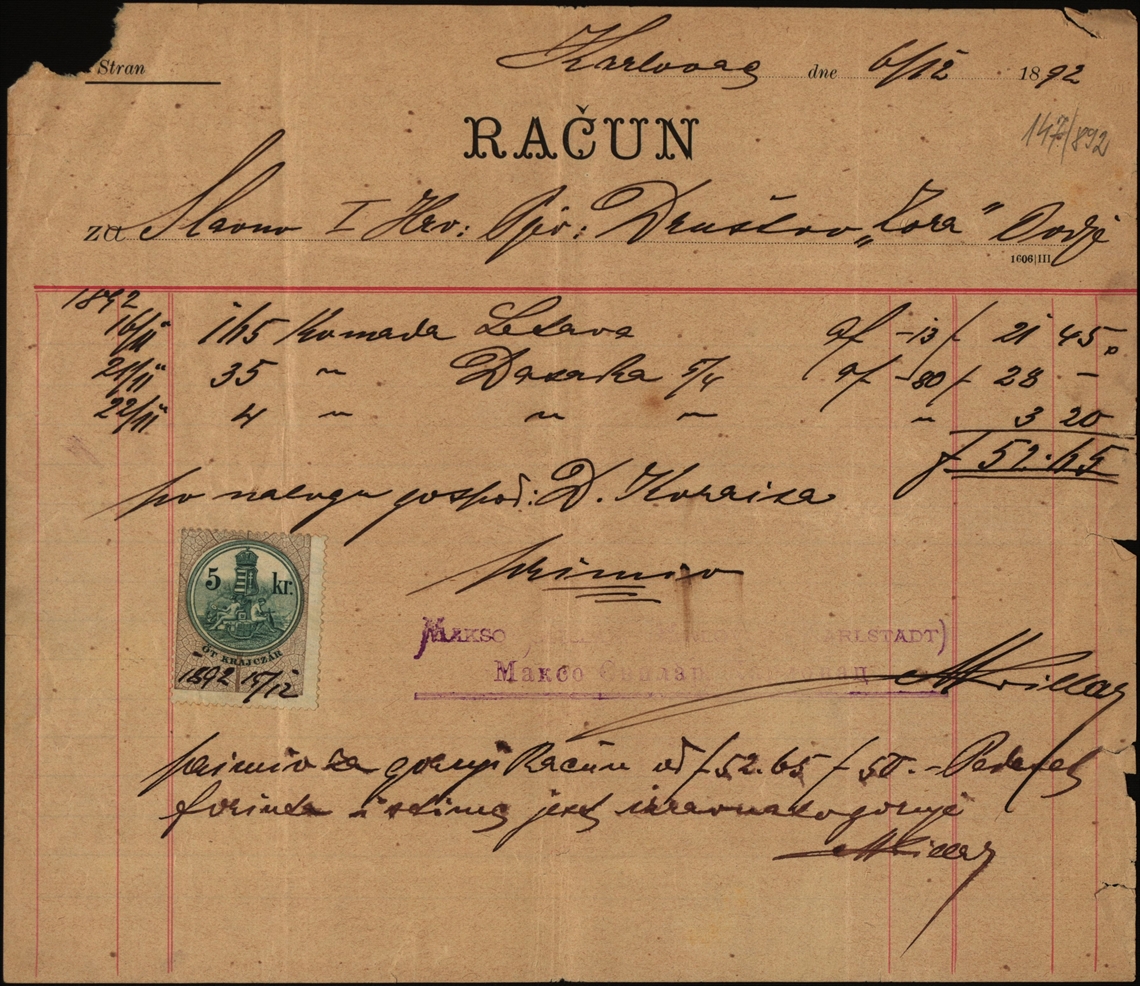 Stran
Karlovac dne 6/12 1892
RAČUN
147/892
za Slavno I Hrv: Pjv: Društvo „Zora“ Ovdje
1606|III
1892
16/11 165 Komada Letava af -13 f 21 45
21/11 35 " Dasaka 5/4 af -80 f 28 -
22/11 4 " " " " 3 20
f 52.65
po nalogu gospod: D. Koraisa
primio
5 kr.
ÖT KRAJCZÁR
1892 15/12
MAKSO ARLSTADT)
Максо
primio za gornji Račun od f 52.65 f 50.- Pedeset
forinta i s time jest izravnato gornje